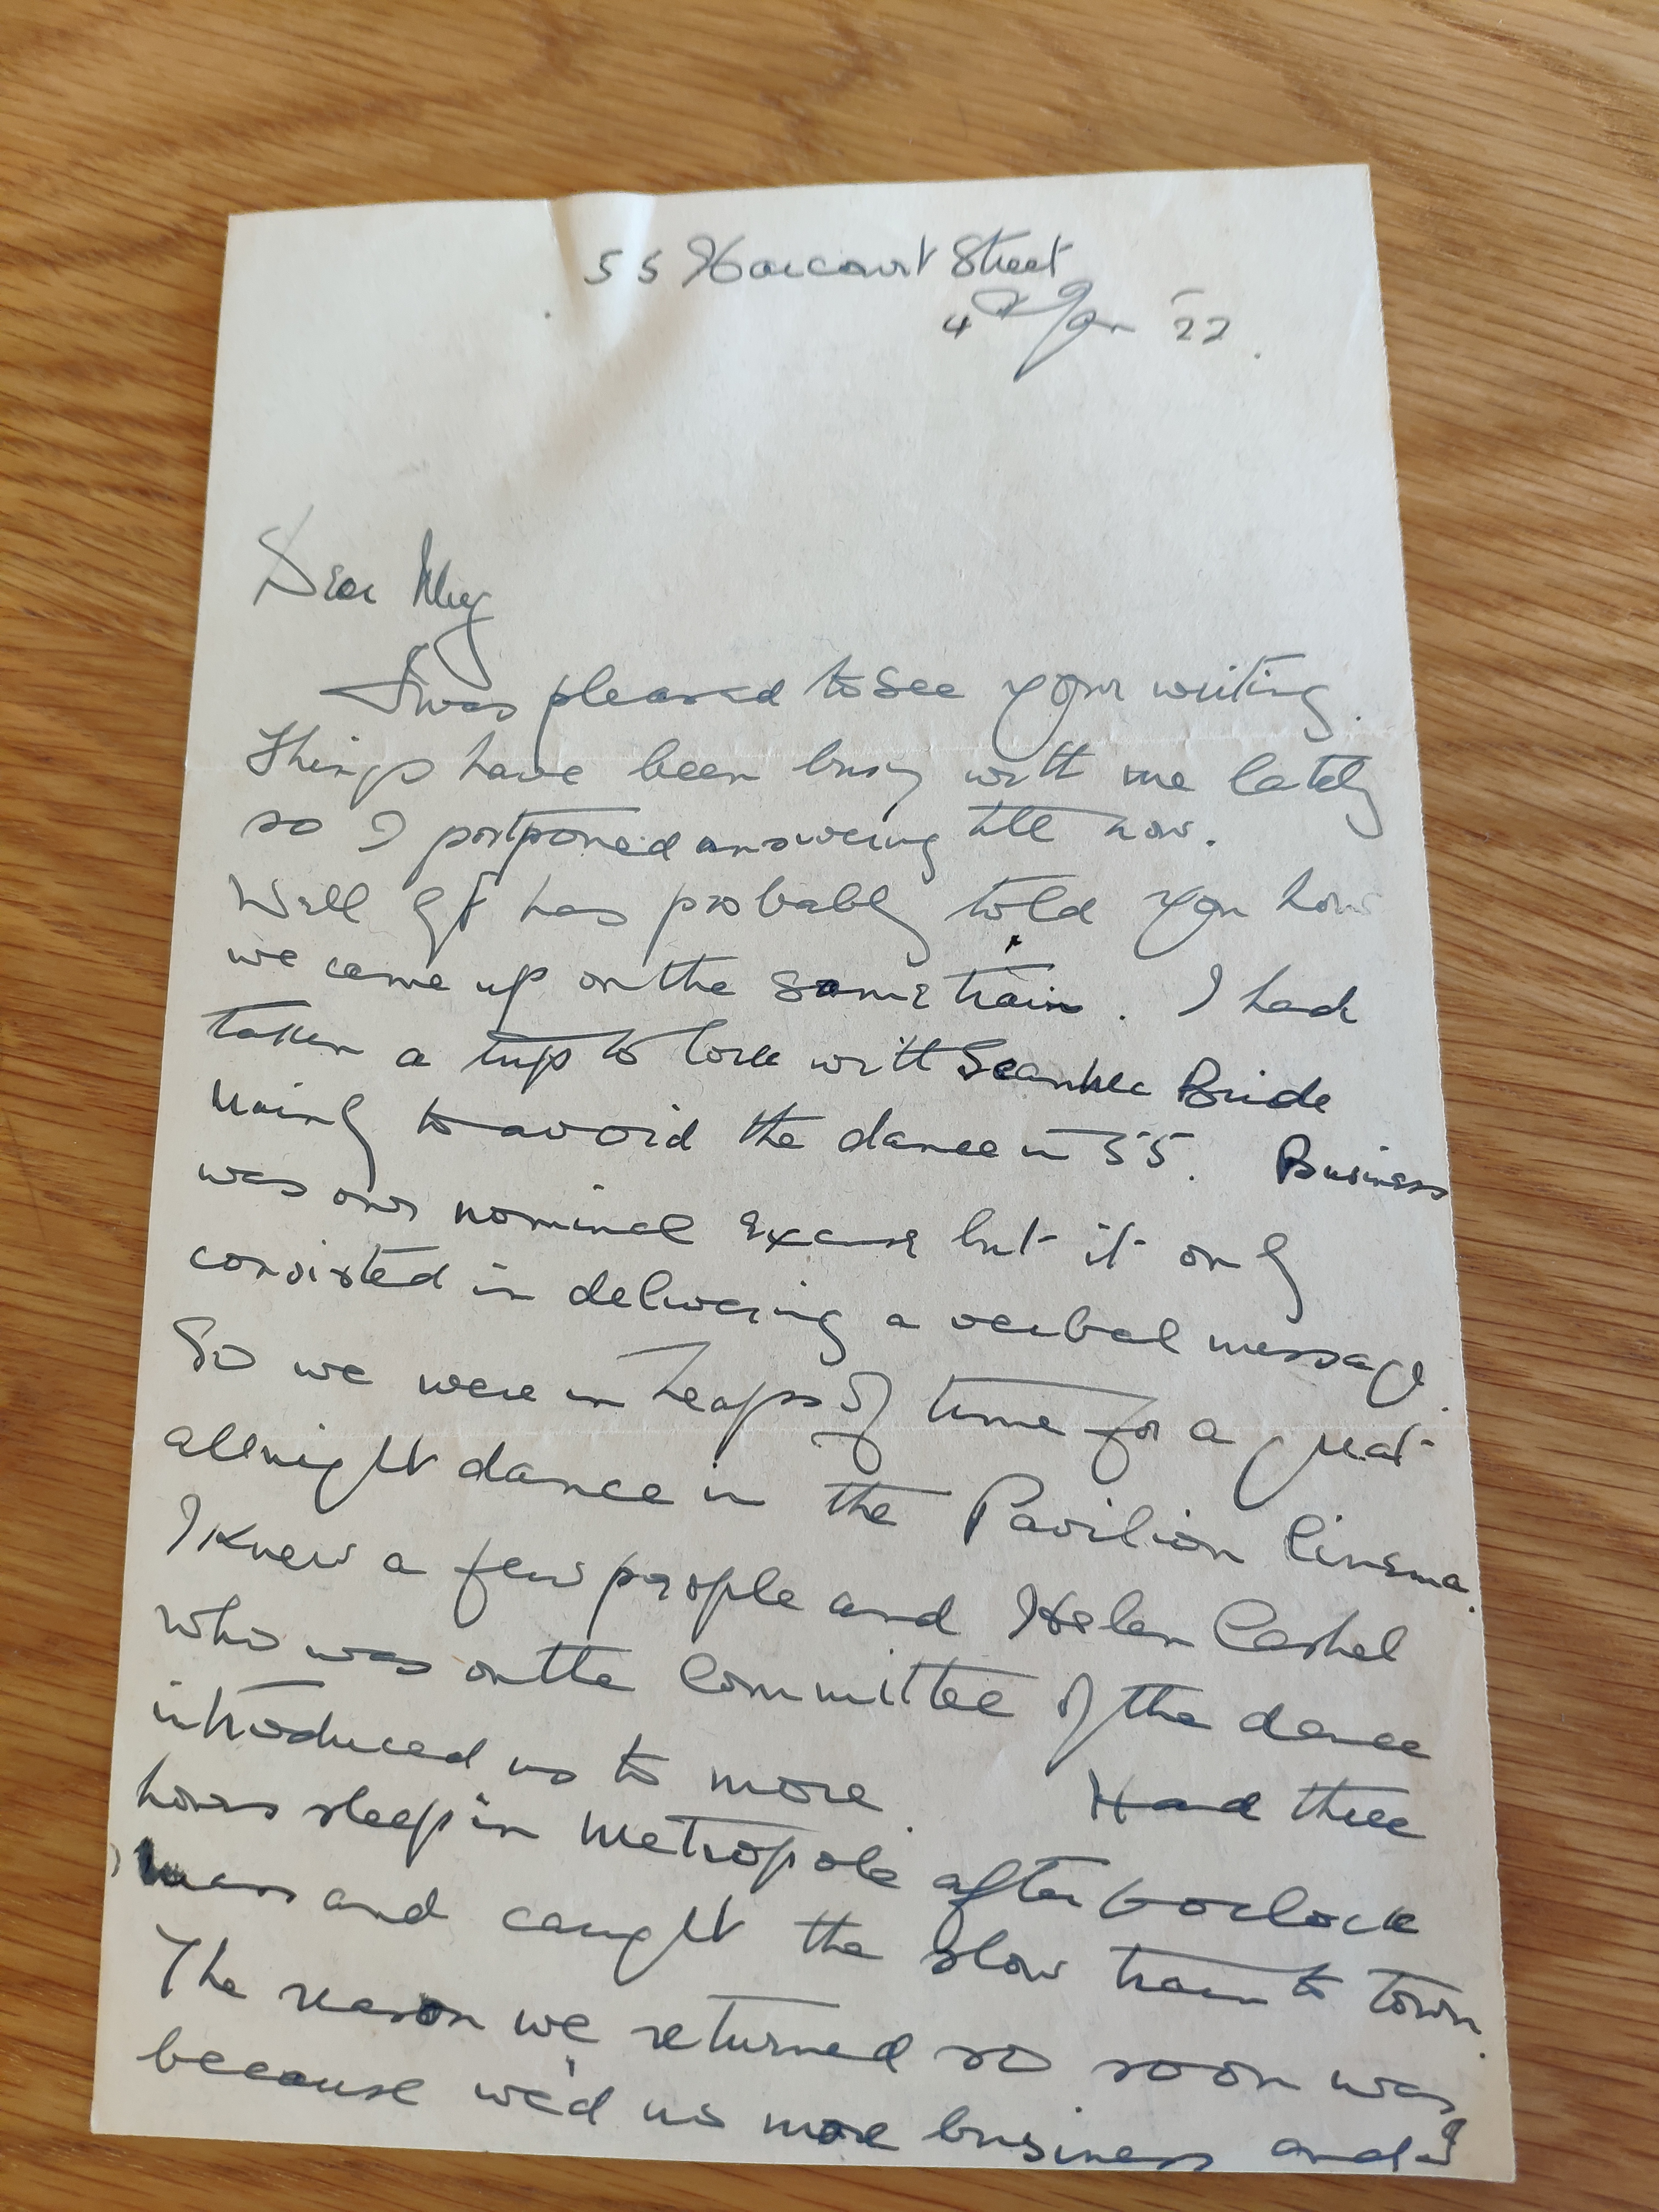 55 Harcourt Street
4th Jan '22.
Dear
I was pleased to see your writing.
Things have been busy with me lately
so I postponed answering till now.
Well has probably told you how
we came up on the same train. I had
taken a trip to Cork with Sean McBride
mainly to avoid the dance in 55. Business
was our nominal excuse but it only
consisted in delivering a verbal message.
So we were in heaps of time for a great
allnight dance in the Pavilion Cinema.
I knew a few people and Helen Cashel
who was on the Committee of the dance
introduced us to more. Had three
hours sleep in Metropole after 6 oclock
mass and caught the slow train to town.
The reason we returned so soon was
because we'd no more business and